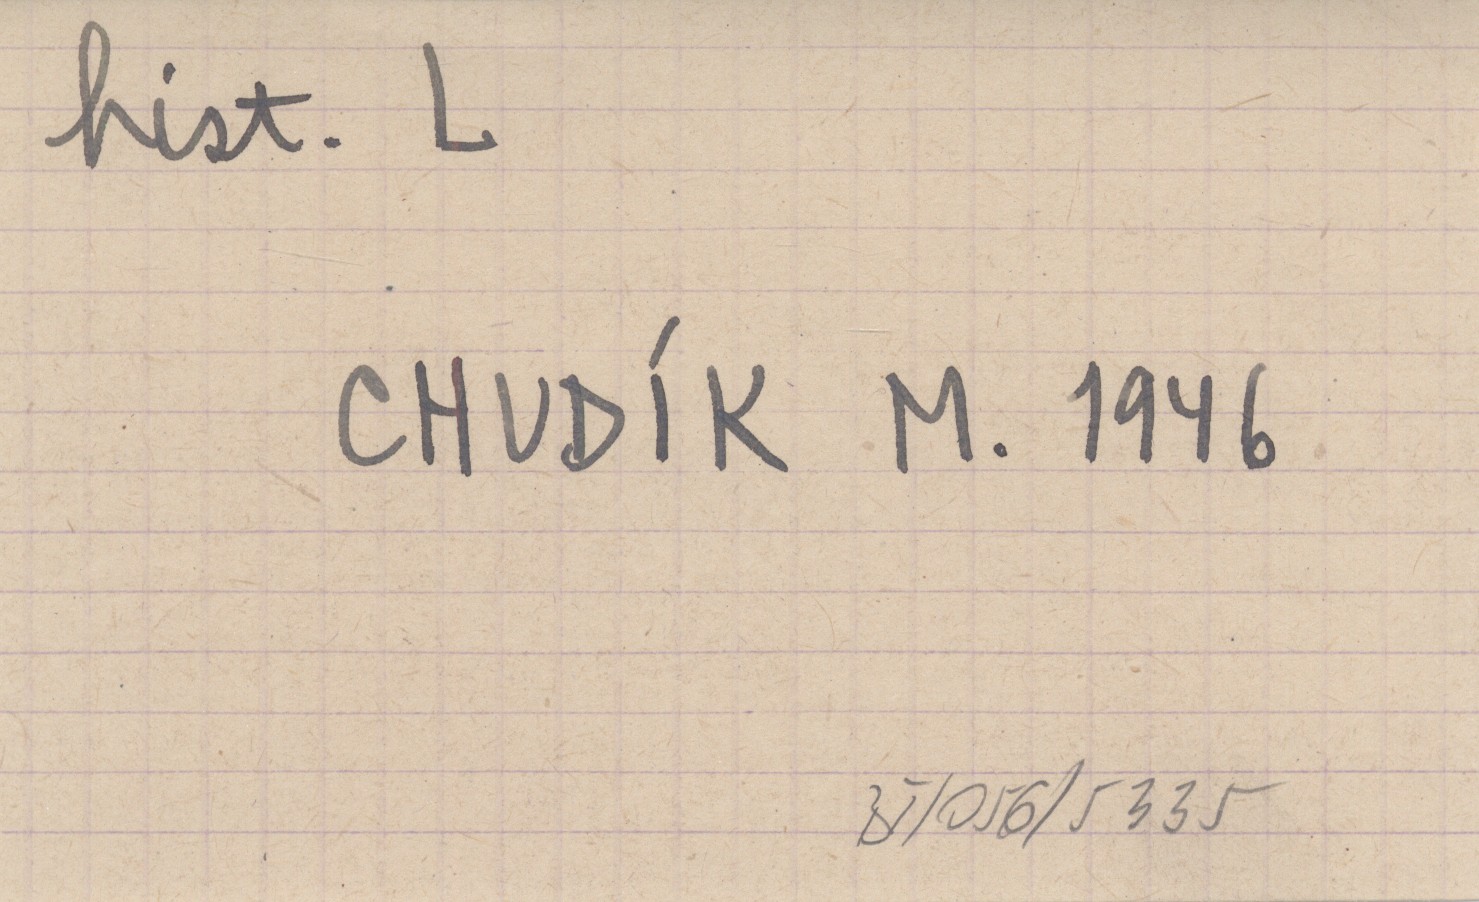 hist. L
CHUDÍK M. 1946
/056/5335